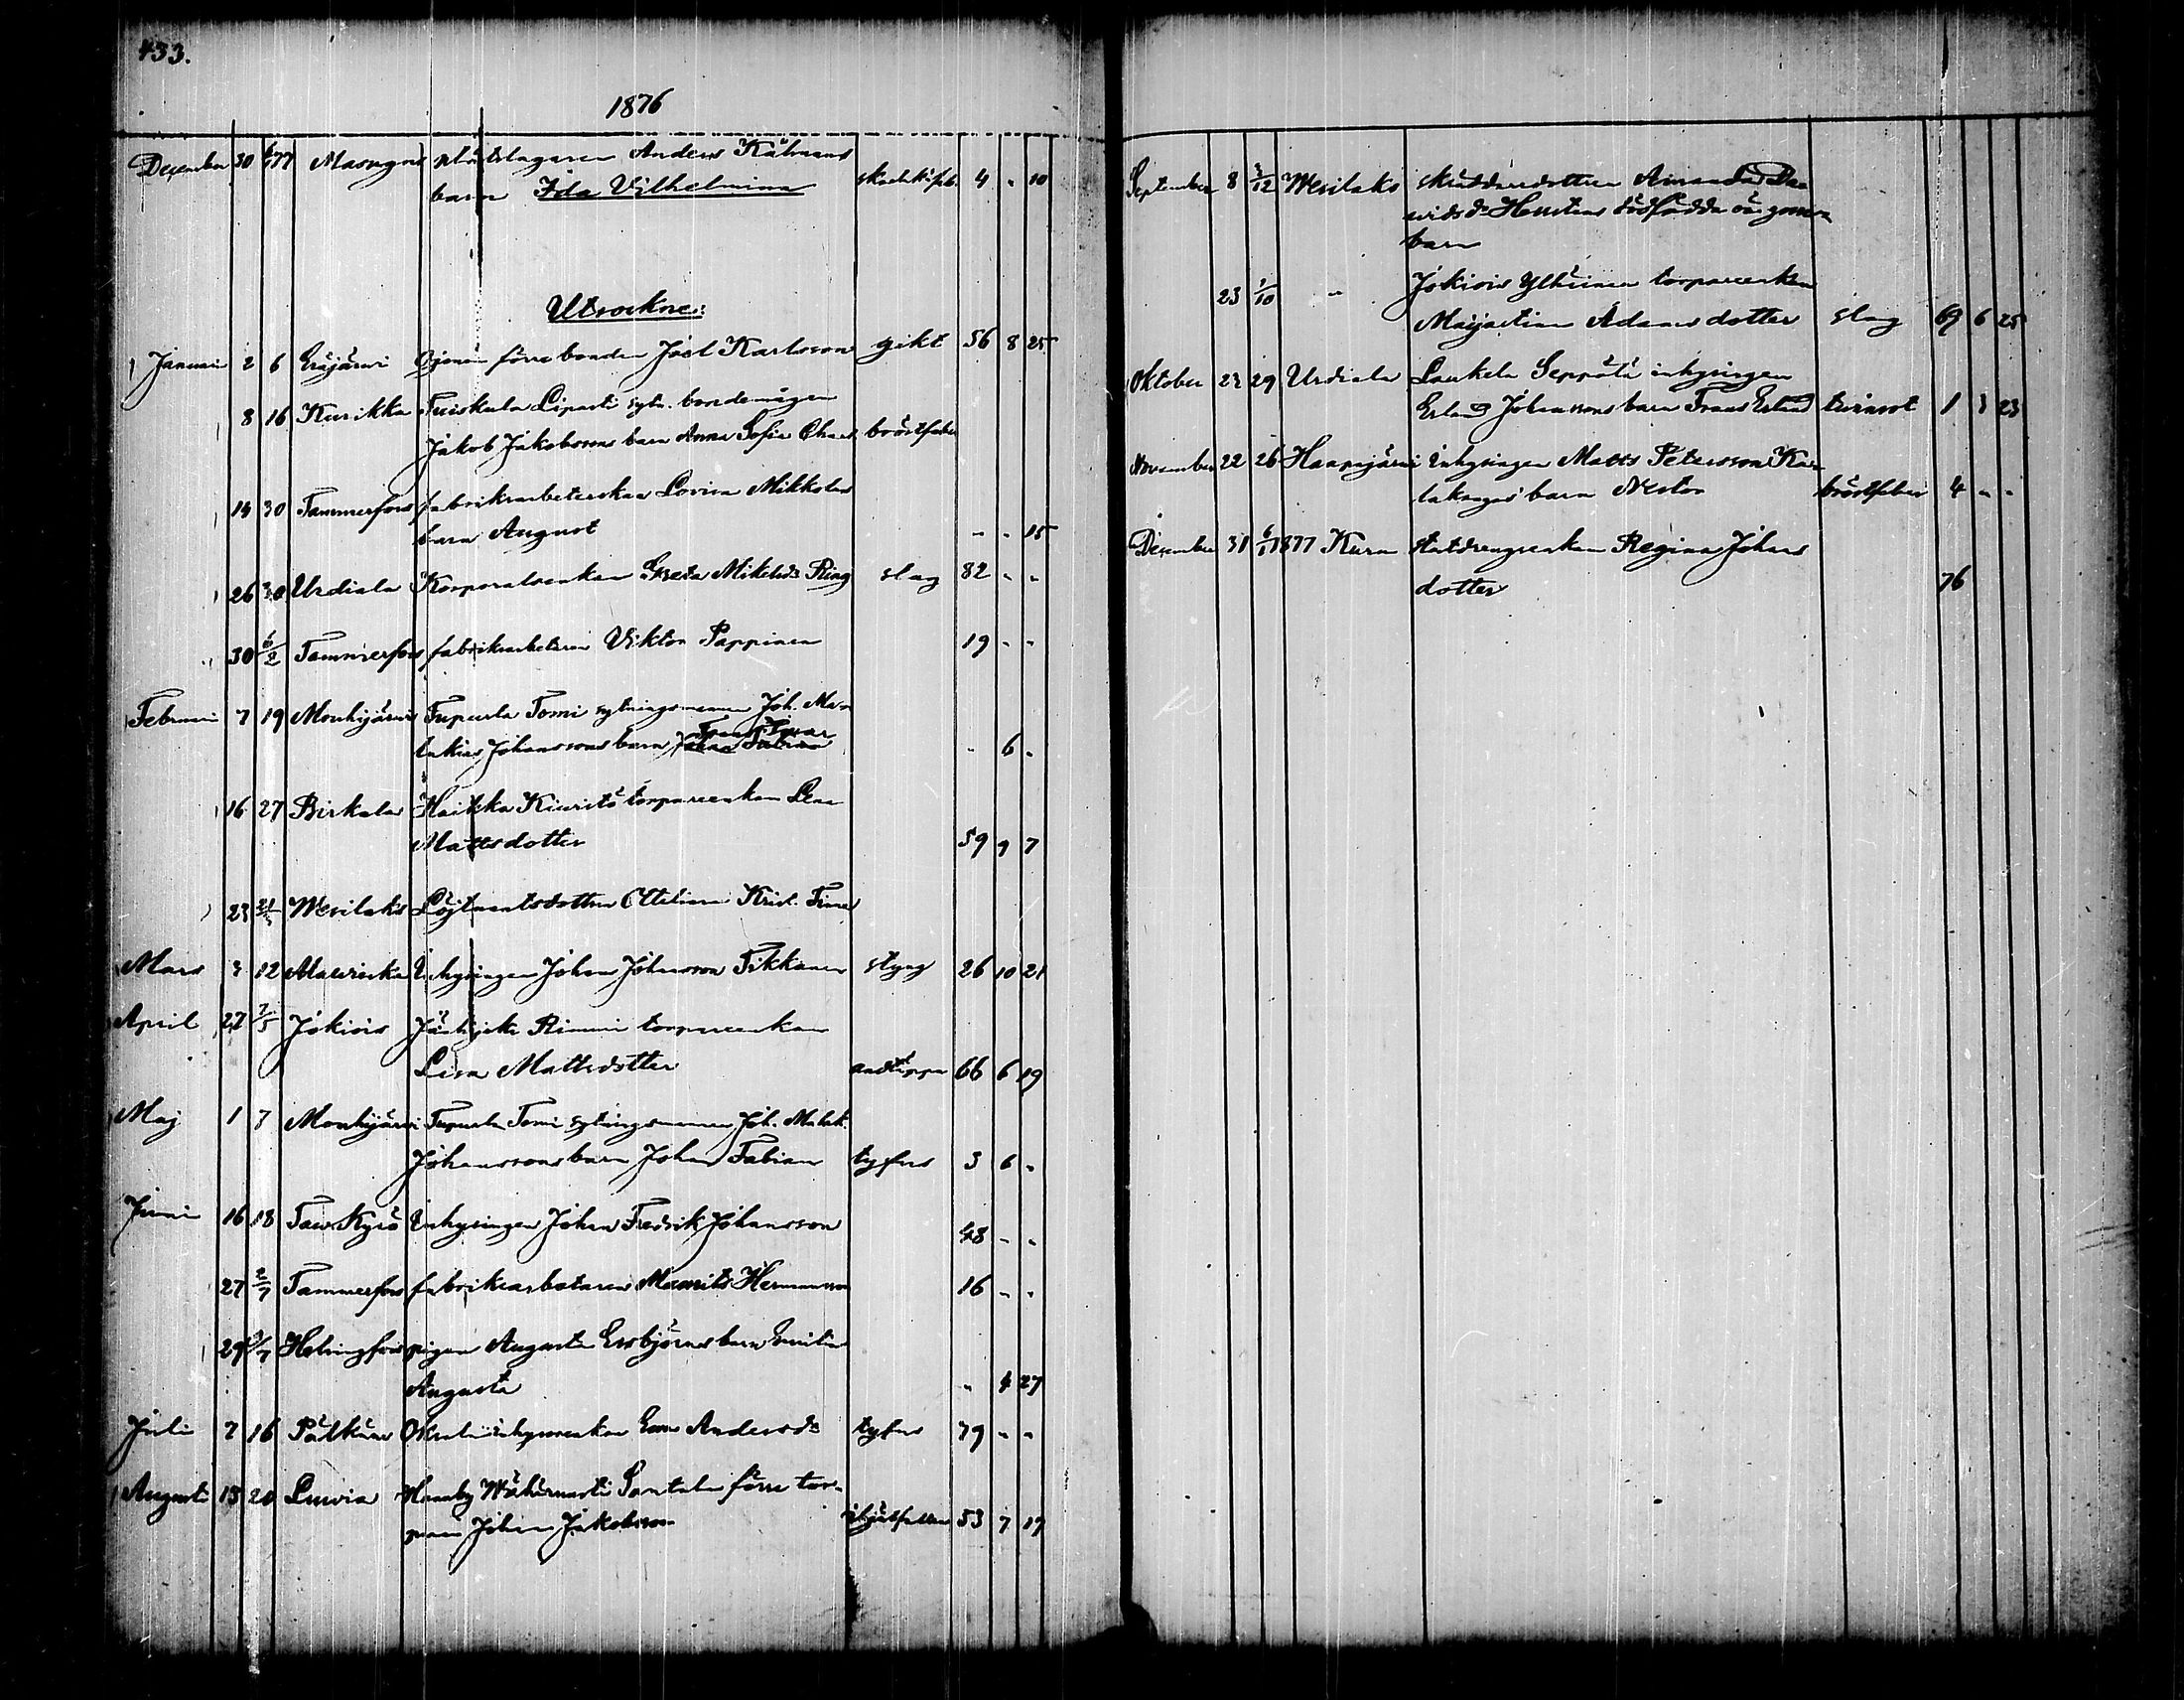 433.
1876
December 30 6/1 77 Masugns plåtslagaren Anders Kälmans
barn Ida Vilhelmina skarlak.feb. 4 - 10
Utsockne:
Januari 2 6 Eräjärvi förre bonden Joel Karlsson gikt 56 8 25
8 16 Kurikka Liparti sytn. bondemågen
Jakob Jakobssons barn Anna Sofia bröstfeber
14 30 Tammerfors fabriksarbeterskan Lovisa Mikkolas
barn August - - 15
26 30 Urdiala Korporalsenkan Greta Mikelsdr Ring slag 82 - -
30 6/2 Tammerfors fabriksarbetaren Viktor Pappinen 19 - -
Februari 7 19 Mouhijärvi Tupurla Tomi sytningsmannen Joh. Ma-
lakias Johanssons barn Johan Fabian Frans Ivar - 6 -
16 27 Birkala Haikka Kiuristö torpareenkan Lena
Mattsdotter 59 9 7
23 Wesilaks Löjtnantsdottren Ottiliana Krist.
Mars 3 12 Inhysingen Johan Johansson Tikkanen styng 26 10 21
April 27 7/5 Jokiois Rimmi torpareenkan
Lisa Mattsdotter andtäppa 66 6 19
Maj 1 7 Mouhijärvi Tupurla Tomi sytningsmannen Joh. Malak.
Johanssons barn Johan Fabian tyfus 3 6 -
Juni 16 18 Taw.Kyrö Inhysingen Johan Fredrik Johansson 48 - -
27 2/7 Tammerfors fabriksarbetaren Maurits Hermansson 16 - -
29 Helsingfors pigan Augusta Ersbjörns barn Emilia
Augusta - 4 27
Juli 7 16 Pälkäne inhysenkan Anders dr tyfus 79 - -
Augusti 15 20 Luvia Hanniby Santala förre tor-
paren Johan Jakobsson ihjälfallen 53 7 17
September 8 3/12 Wesilaks skräddaredottren Amanda Da-
vids dr Hellstens dödfödda oä. gosse-
barn
23 1/10 " Jokiois torpareenkan
Majastina Adams dotter slag 69 6 25
Oktober 23 29 Urdiala Laukela Seppälä inhysingen
Erland Johanssons barn Frans Erland tvinsot 1 3 23
November 22 26 Haapajärvi Inhysingen Matts Petersson Ka-
lakangas' barn Nestor bröstfeber 4 - -
December 31 6/1 1877 Kuru statdrängsenkan Regina Johans
dotter 76